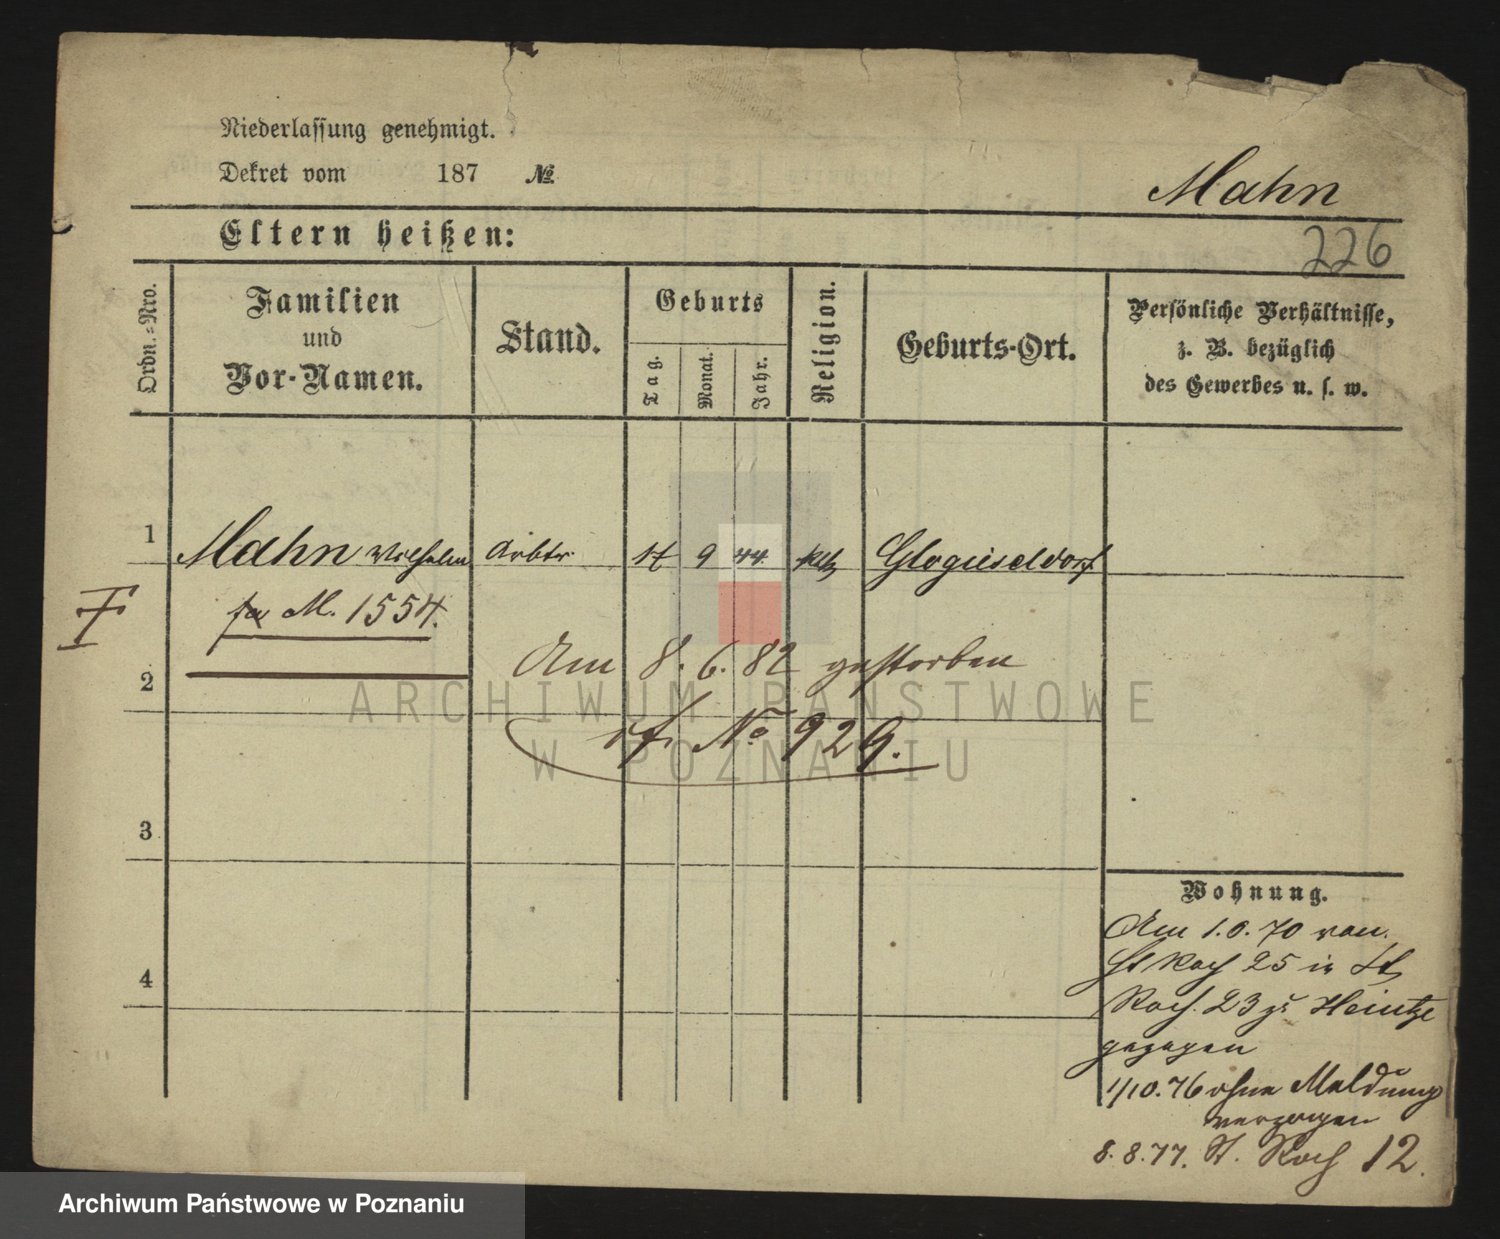 Niederlassung genehmigt.
Dekret vom 187 №
Mahn
Eltern heißen:
226
Ordn.-Nro.
Familien
und
Vor-Namen.
Stand.
Geburts
Tag.
Monat.
Jahr.
Religion.
Geburts-Ort.
Persönliche Verhältnisse,
z. B. bezüglich
des Gewerbes u. s. w.
1 Mahn Wilhelm Arbtr 9 44 Kth
M. 1554.
2
Am 8. 6. 82 gestorben
cf. No 929.
ARCHIWUM PAŃSTWOWE
W POZNANIU
3
Wohnung.
Am 1. 70 von
St Roch 25 in St
Roch 23 zu Heintze
gezogen
1/10. 76 ohne Meldung
verzogen
8. 8. 77. St. Roch 12.
4
Archiwum Państwowe w Poznaniu